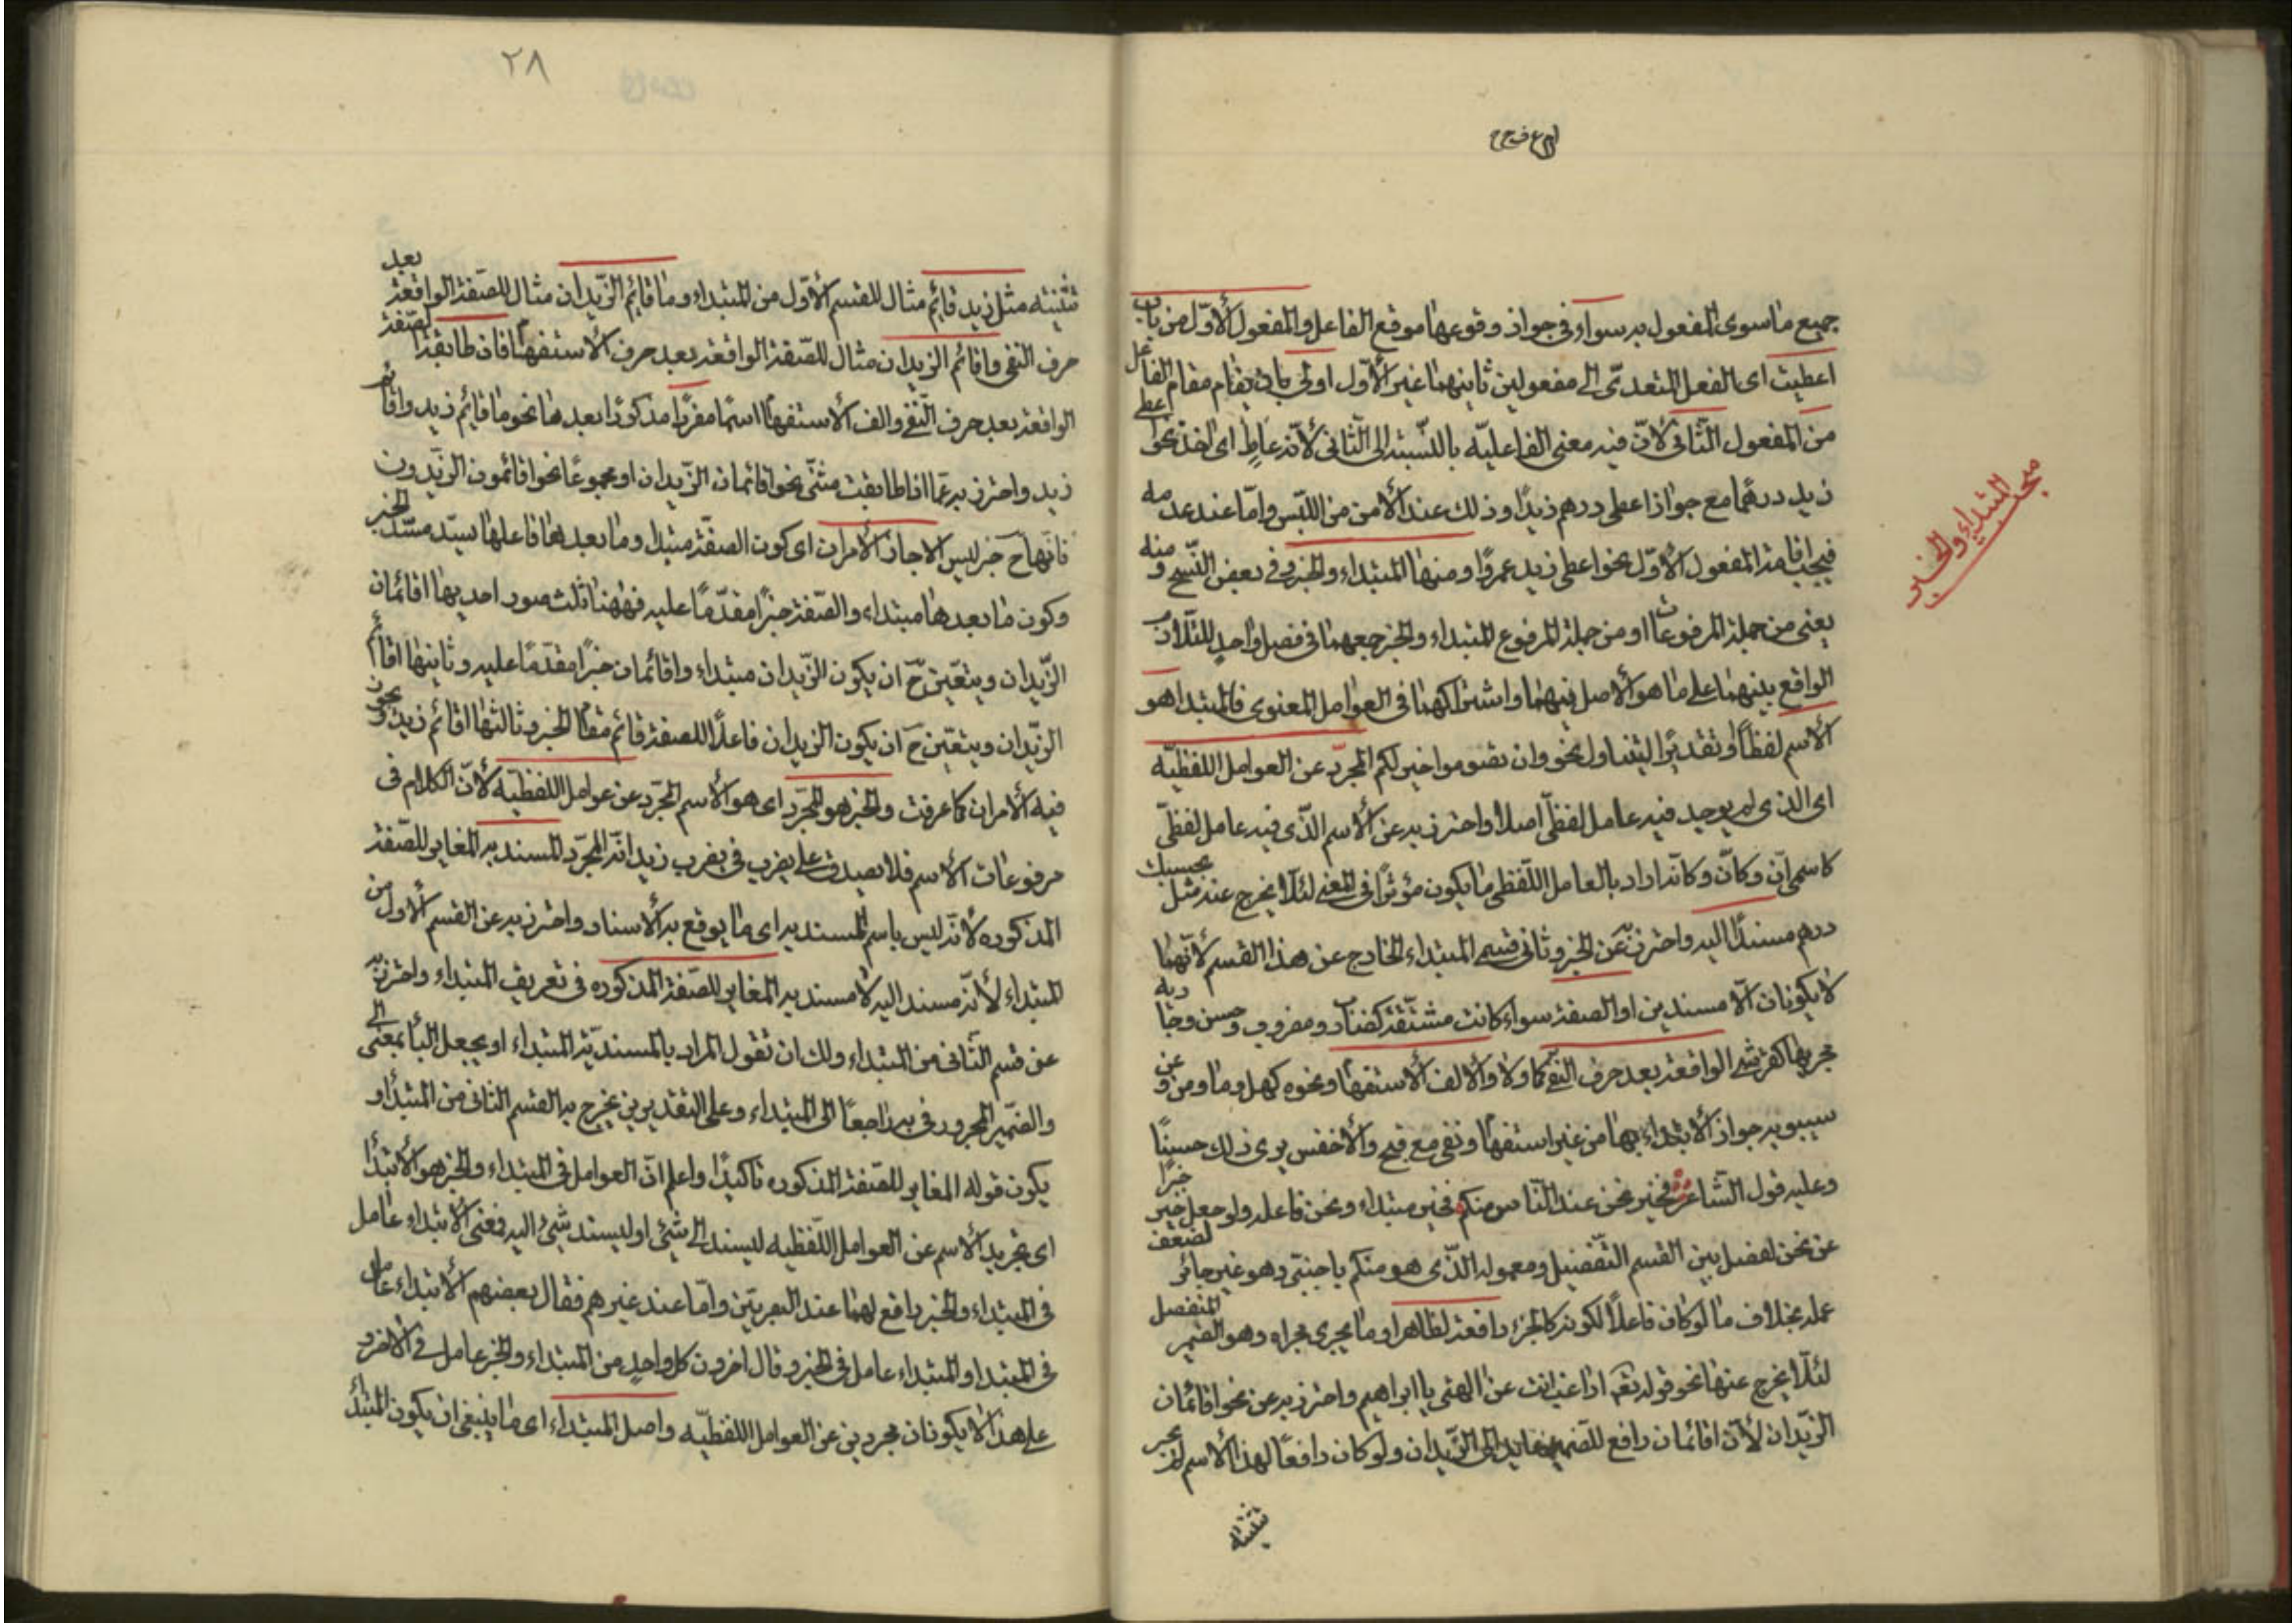 جميع ما سوى المفعول به سواء في جواز وقوعها موقع الفاعل والمفعول الأوّل من باب
اعطيت اى الفعل المتعدّى الى مفعولين ثانيهما غير الأوّل اولى بان يقام مقام الفاعل
من المفعول الثّانى لانّ فيه معنى الفاعليّه بالنّسبة الى الثّانى لأنّه عاطٍ اى اخذ نحو اعطى
زيد درهمًا مع جواز اعطى درهم زيدًا وذلك عند الأمن من اللبّس وامّا عند عدمه
فيجب اقامة المفعول الأوّل نحو اعطى زيد عمروًا ومنها المبتداء والخبر وفى بعض النّسخ ومنه
يعنى من جملة المرفوعات او من جملة المرفوع المبتداء والخبر جمعهما فى فصل واحدٍ للتلازم
الواقع بينهما على ما هو الأصل فيهما واشتراكهما فى العوامل المعنوى فالمبتدا هو
الأسم لفظًا او تقديرًا ليتناول نحو وان تصوموا خير لكم المجرّد عن العوامل اللفظيّه
اى الذى لم يوجد فيه عامل لفظّى اصلا واحترز به عن الأسم الذّى فيه عامل لفظّى
كاسمى انّ وكانّ وكانّه اراد بالعامل اللّفظى ما يكون مؤثرًا فى المعنى لئلّا يخرج عنه مثل بحسبك
درهم مسندًا اليه واحترز به عن الخبر وثانى قسمى المبتداء الخارج عن هذا القسم لأنّهما
لا يكونان الّا مسندين او الصفة سواء كانت مشتقّة كضارب ومضروب وحسن وجاريه
مجريها كقرشى الواقعة بعد حرف النّفى كما ولا والالف الأستفهام ونحوه كهل وما ومن وعن
سيبويه جواز الأبتداء بها من غير استفهام ونفى مع قبح والأخفش يرى ذلك حسنًا
وعليه قول الشّاعر فخير نحن عند النّاس منكم فخير مبتداء ونحن فاعله ولو جعل خير خبرًا
عن نحن لفصل بين القسم التّفضيل ومعموله الذّى هو منكم باجنبّى وهو غير جائز لضعف
عمله بخلاف ما لو كان فاعلًا لكونه كالجزء رافعة لظاهر او ما يجرى مجراه وهو الضمير المنفصل
لئلّا يخرج عنها نحو قوله تعه اراغب انت عن الهتى يا ابراهيم واحترز به عن نحو اقائمان
الزّيدان لأنّ اقائمان رافع للضّمير عايد الى الزّيدان ولو كان رافعًا لهذا الأسم لم يجز
تثنيته
مبحث المبتداء والخبر
٢٨
تثنيته مثل زيد قائم مثال للقسم الأوّل من المبتداء وما قائم الزّيدان مثال للصّفة الواقعة بعد
حرف النفى واقائم الزيدان مثال للصّفة الواقعة بعد حرف الأستفهام فان طابقت الصّفة
الواقعة بعد حرف النّفى والف الأستفهام اسمًا مفردًا مذكورًا بعدها نحو ما قائم زيد واقائم
زيد واحترز به عمّا اذا طابقت مثنّى نحو اقائمان الزّيدان او مجموعًا نحو اقائمون الزيّدون
فانّها ح خبر ليس الا جاز الأمران اى كون الصفّة مبتدا وما بعدها فاعلها يسدّ مسدّ الخبر
وكون ما بعدها مبتداء والصّفة خبرًا مقدّمًا عليه فههنا ثلث صور احديها اقائمان
الزّيدان ويتعيّن ح ان يكون الزّيدان مبتداء واقائمان خبرًا مقدّمًا عليه وثانيها اقائم
الزيّدان ويتعيّن ح ان يكون الزيدان فاعلًا للصفة قائم مقام الخبر وثالثها اقائم زيد ويجوز
فيه الأمران كما عرفت والخبر هو المجرّد اى هو الأسم المجرّد عن عوامل اللفظيّه لأنّ الكلام فى
مرفوعات الأسم فلا يصدق على يضرب فى يضرب زيد انّه المجرّد المسند به المغاير للصّفة
المذكوره لأنّه ليس باسم المسند به اى ما يوقع به الأسناد واحترز به عن القسم الأول من
المبتداء لأنّه مسند اليه لا مسند به المغاير للصّفة المذكوره فى تعريف المبتداء واحترز به
عن قسم الثّانى من المبتداء ولك ان تقول المراد بالمسند به الى المبتداء او يجعل البأ بمعنى الى
والضّمير المجرور فى به راجعًا الى المبتداء وعلى التقديرين يخرج به القسم الثّانى من المبتدأ و
يكون قوله المغاير للصّفة المذكوره تاكيدًا واعلم انّ العوامل فى المبتداء والخبر هو الأبتدأ
اى تجريد الأسم عن العوامل اللّفظيه ليسند الى شئ او ليسند شئ اليه فمعنى الأبتداء عامل
فى المبتداء والخبر رافع لهما عند البصريّين وامّا عند غيرهم فقال بعضهم الأبتداء عامل
فى المبتدا والمبتداء عامل فى الخبر وقال اخرون كل واحدٍ من المبتداء والخبر عامل فى الأخر و
على هذا لا يكونان مجردين عن العوامل اللفظيّه واصل المبتداء اى ما ينبغى ان يكون المبتدأ